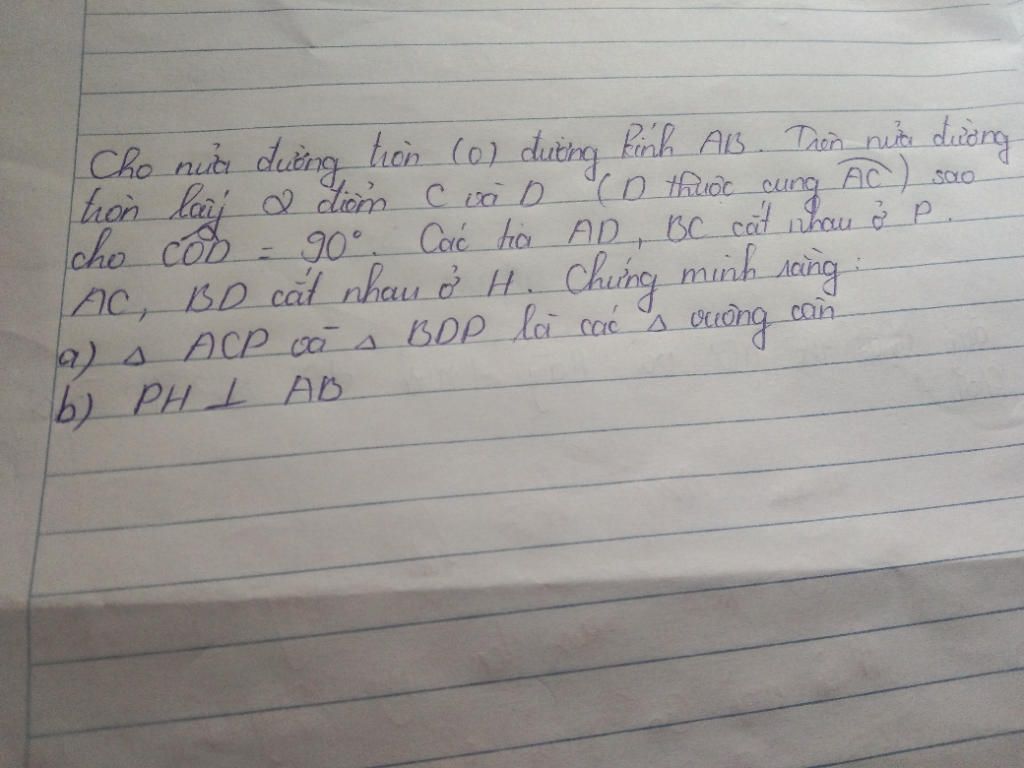 Cho nửa đường tròn (O) đường kính AB. Trên nửa đường
tròn lấy 2 điểm C và D (D thuộc cung AC) sao
cho COD = 90°. Các tia AD, BC cắt nhau ở P.
AC, BD cắt nhau ở H. Chứng minh rằng:
a) Δ ACP và Δ BDP là các Δ vuông cân
b) PH ⊥ AB